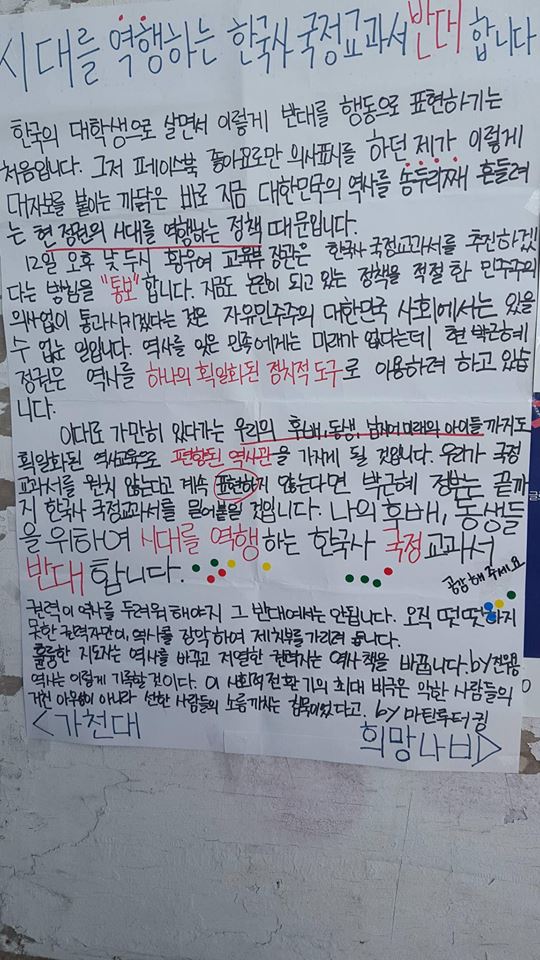 시대를 역행하는 한국사 국정교과서 반대 합니다
한국의 대학생으로 살면서 이렇게 반대를 행동으로 표현하기는
처음입니다. 그저 페이스북 좋아요로만 의사표시를 하던 제가 이렇게
대자보를 붙이는 까닭은 바로 지금 대한민국의 역사를 송두리째 흔들려
는 현 정권의 시대를 역행하는 정책 때문입니다.
12일 오후 낮 두시 황우여 교육부 장관은 한국사 국정교과서를 추진하겠
다는 방침을 "통보" 합니다. 지금도 논란이 되고 있는 정책을 적절한 민주주의
의사없이 통과시키겠다는 것은 자유민주주의 대한민국 사회에서는 있을
수 없는 일입니다. 역사를 잊은 민족에게는 미래가 없다는데 현 박근혜
정권은 역사를 하나의 획일화된 정치적 도구로 이용하려 하고 있습
니다.
이대로 가만히 있다가는 우리의 후배, 동생, 넘치어 미래의 아이들까지도
획일화된 역사교육으로 편향된 역사관을 가지게 될 것입니다. 우리가 국정
교과서를 원치 않는다고 계속 표현하지 않는다면 박근혜 정부는 끝까
지 한국사 국정교과서를 밀어붙일 것입니다. 나의 후배, 동생들
을 위하여 시대를 역행하는 한국사 국정교과서
반대 합니다.
공감 해 주세요
권력이 역사를 두려워해야지 그 반대여서는 안됩니다. 오직 떳떳하지
못한 권력자만이 역사를 장악하여 제 치부를 가리려 듭니다.
훌륭한 지도자는 역사를 바꾸고 저열한 권력자는 역사책을 바꿉니다. by 전우용
역사는 이렇게 기록할 것이다. 이 사회적 전환기의 최대 비극은 악한 사람들의
거친 아우성이 아니라 선한 사람들의 소름끼치는 침묵이었다고. by 마틴루터킹
<가천대 희망나비>